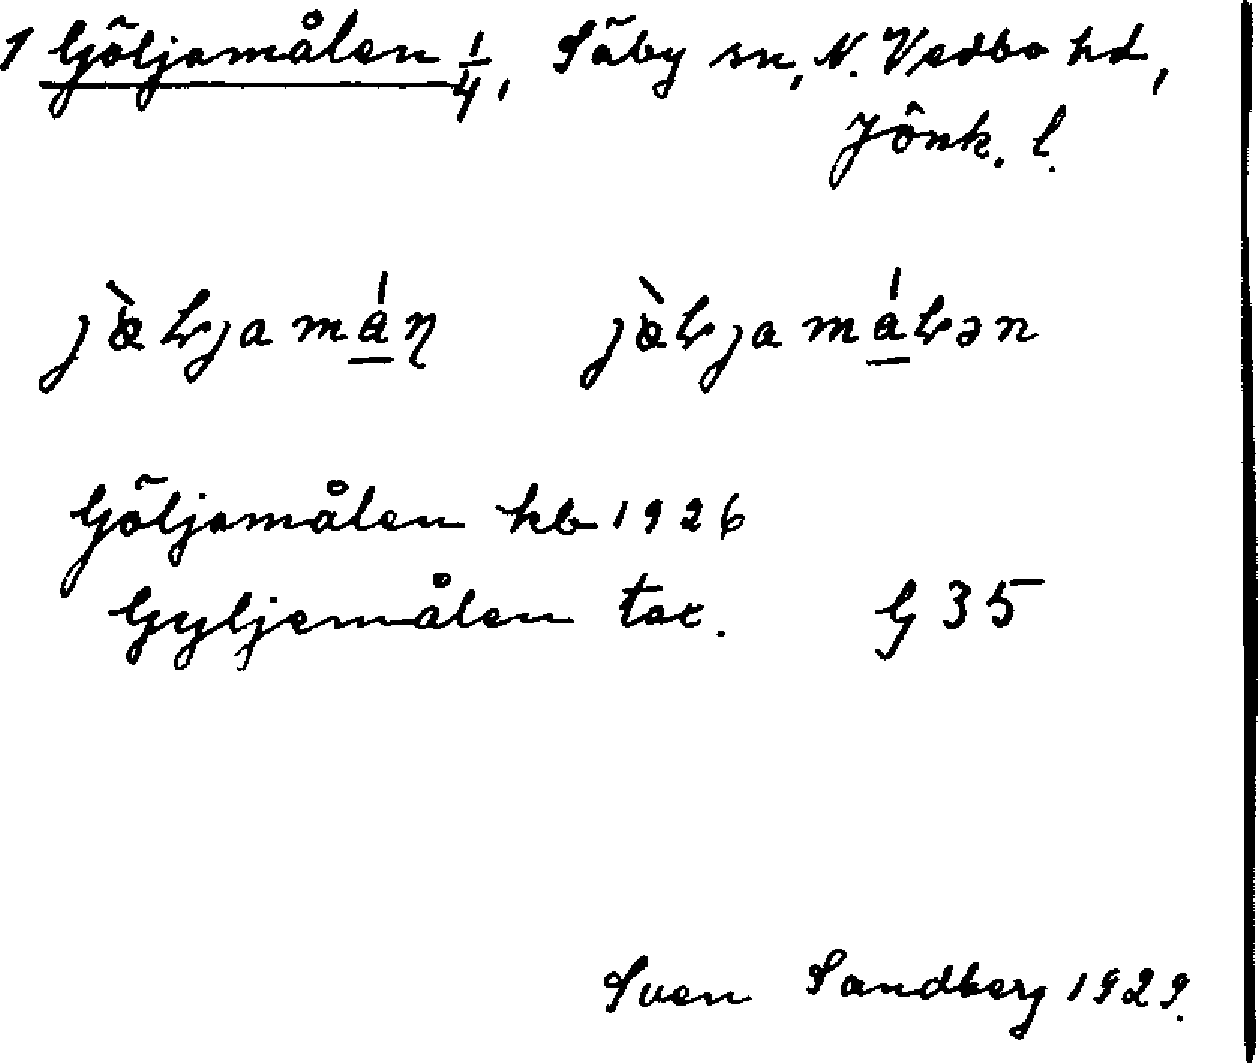 1 Göljamålen 1/4, Säby sn, N. Vedbo hd,
Jönk. l.
Göljamålen hb 1926
Gyljemålen tax. G 35
Sven Sandberg 1929.